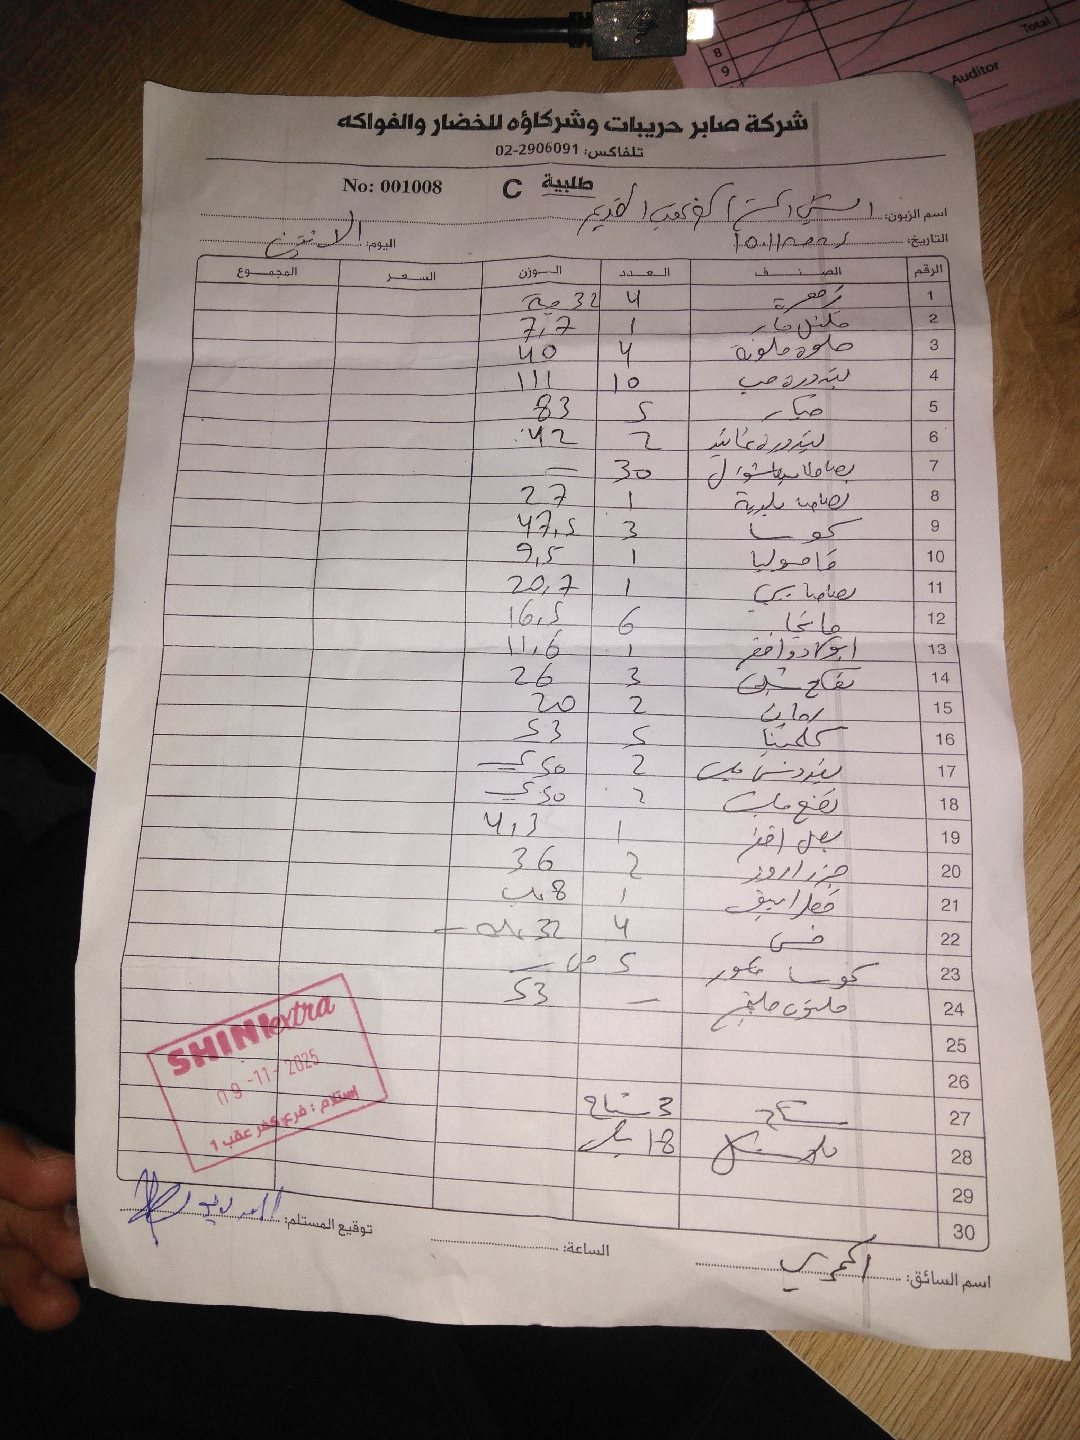 8
9
Total
Auditor
شركة صابر حريبات وشركاؤه للخضار والفواكه
تلفاكس: 02-2906091
No: 001008 C طلبية
اسم الزبون: القديم
التاريخ: 10.11.2025 اليوم: الاثنين
الرقم الصنف العدد الوزن السعر المجموع
1 زهرة 4 32 حبة
2 فلفل حار 1 7,7
3 حلوة ملونة 4 40
4 بندورة حب 10 111
5 خيار 5 83
6 بندورة 2 42
7 بطاطا 30 =
8 بطاطا بلدية 1 27
9 كوسا 3 47,5
10 فاصوليا 1 9,5
11 بطاطا 1 20,7
12 مانجا 6 16,5
13 افوكادو اخضر 1 11,6
14 تفاح 3 26
15 رمان 2 20
16 كلمنتينا 5 53
17 2 50
18 نعنع 2 50
19 بصل اخضر 1 4,3
20 جزر 2 36
21 فطر ابيض 1 8
22 خس 4 32
23 كوسا محفور 5
24 53
25
26
27 3
28 18
29
30
SHINI extra
09-11-2025
استلام : فرع كفر عقب 1
توقيع المستلم:
الساعة:
اسم السائق: